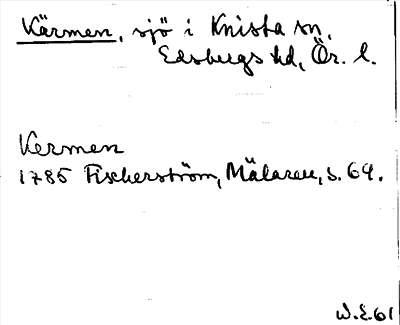 Kärmen, sjö i Knista sn,
Edsbergs hd, Ör. l.
Kermen
1785 Fischerström, Mälaren, s. 64.
W.E. 61